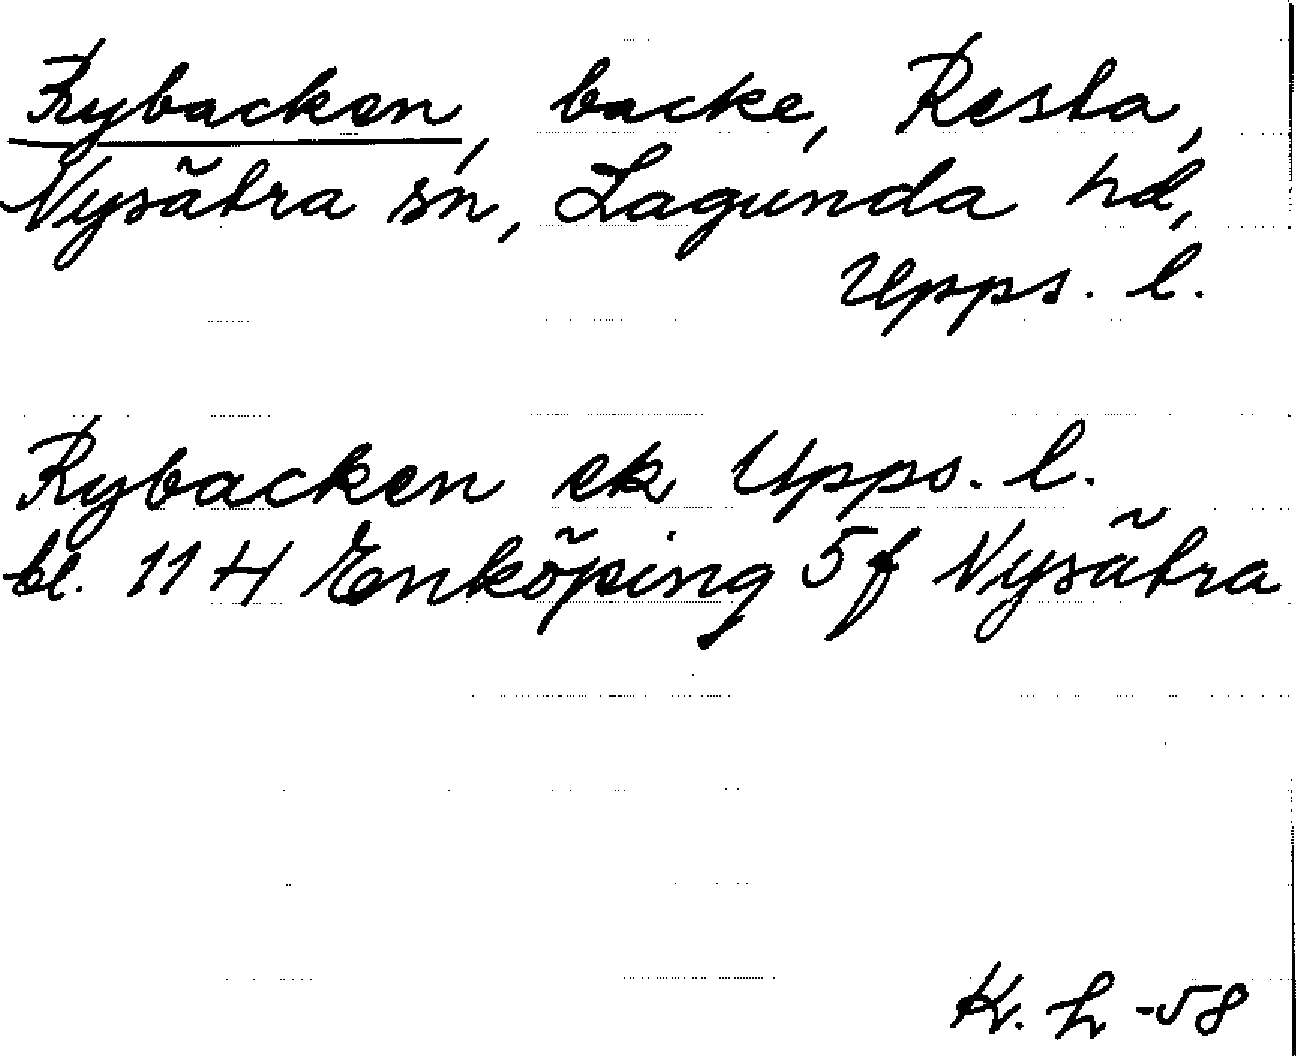 Rybacken, backe, Resta,
Nysätra sn, Lagunda hd,
Upps. l.
Rybacken ek Upps. l.
bl. 11 H Enköping 5 f Nysätra
K. L -58